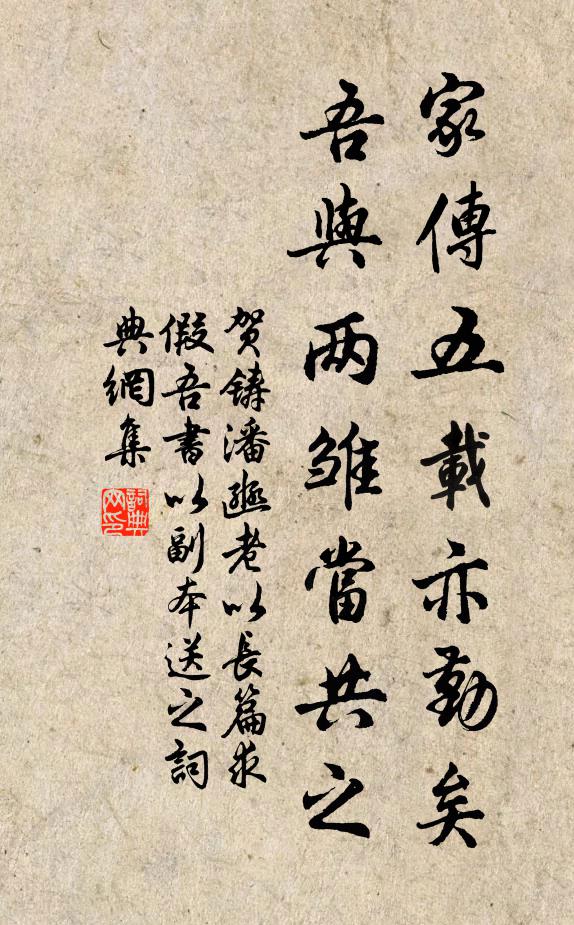 家傳五載亦勤矣
吾與两雏當共之
贺鑄潘邈老以長篇求
假吾書以副本送之詞
典網集
詞典
网印